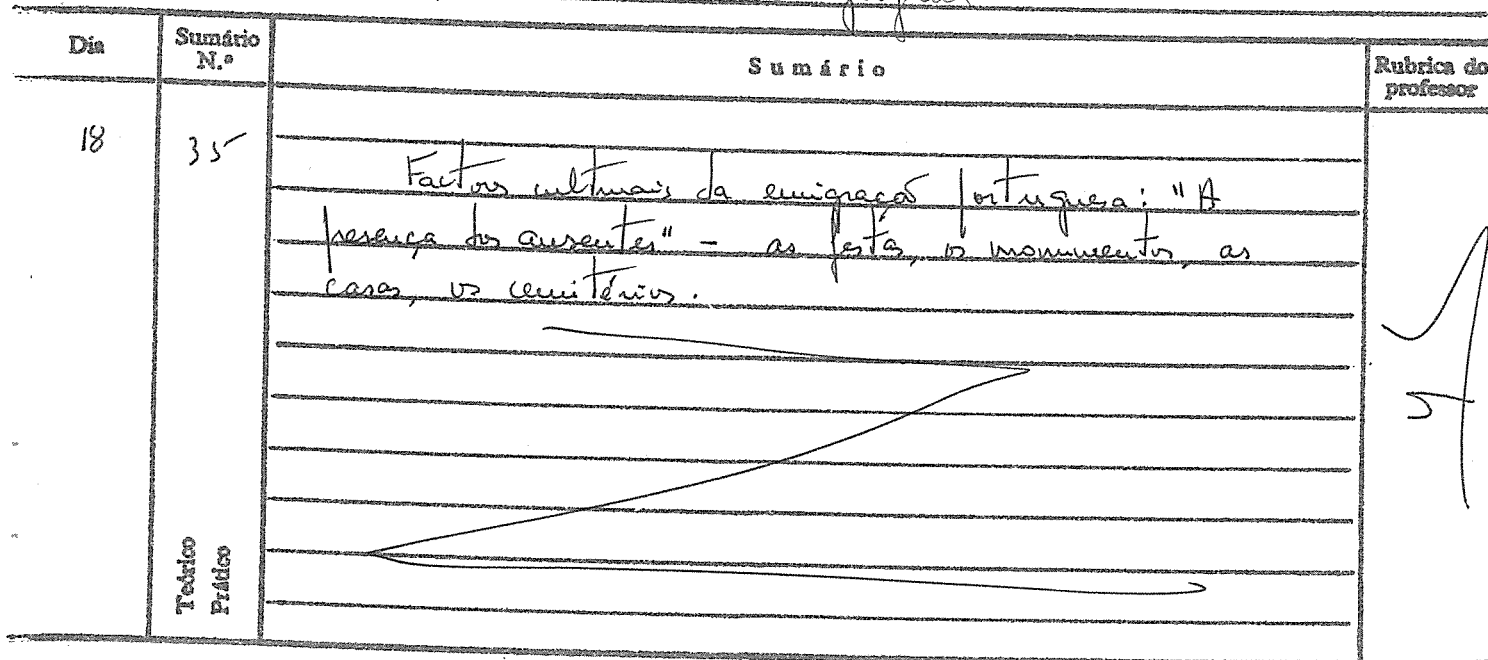 Dia Sumário N.º Sumário Rubrica do professor
18 35
Factores culturais da emigração portuguesa: "A
presença dos ausentes" - as festas, os monumentos, as
casas, os cemitérios.
Teórico
Prático